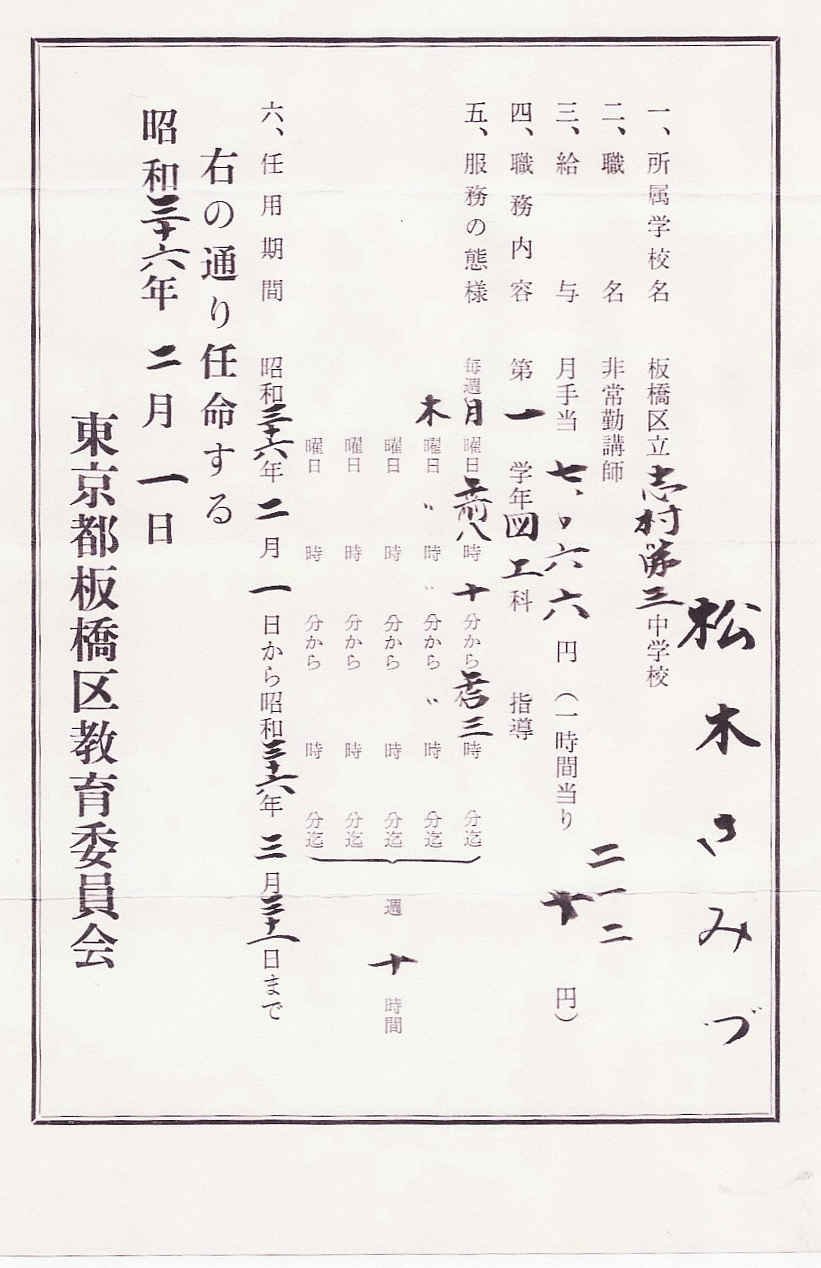 松木きみづ
一、所属学校名 板橋区立志村第三中学校
二、職名 非常勤講師
三、給与 月手当 七、〇六六円(一時間当り 円)
二一二
四、職務内容 第一学年図工科 指導
五、服務の態様 毎週月曜日午前八時十分から午后三時 分迄
木曜日 〃 時 〃 分から 〃 時 分迄
曜日 時 分から 時 分迄 週十時間
曜日 時 分から 時 分迄
曜日 時 分から 時 分迄
六、任用期間 昭和三十六年二月一日から昭和三十六年三月三十一日まで
右の通り任命する
昭和三十六年二月一日
東京都板橋区教育委員会